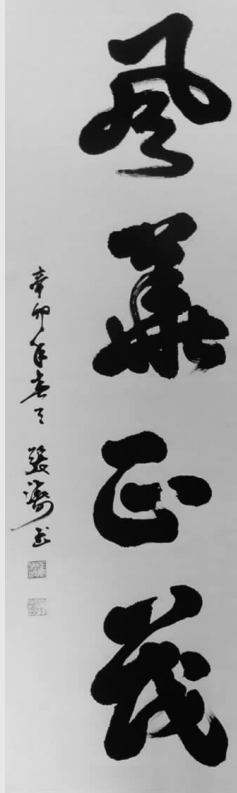 風華正茂
辛卯年春月張濤書